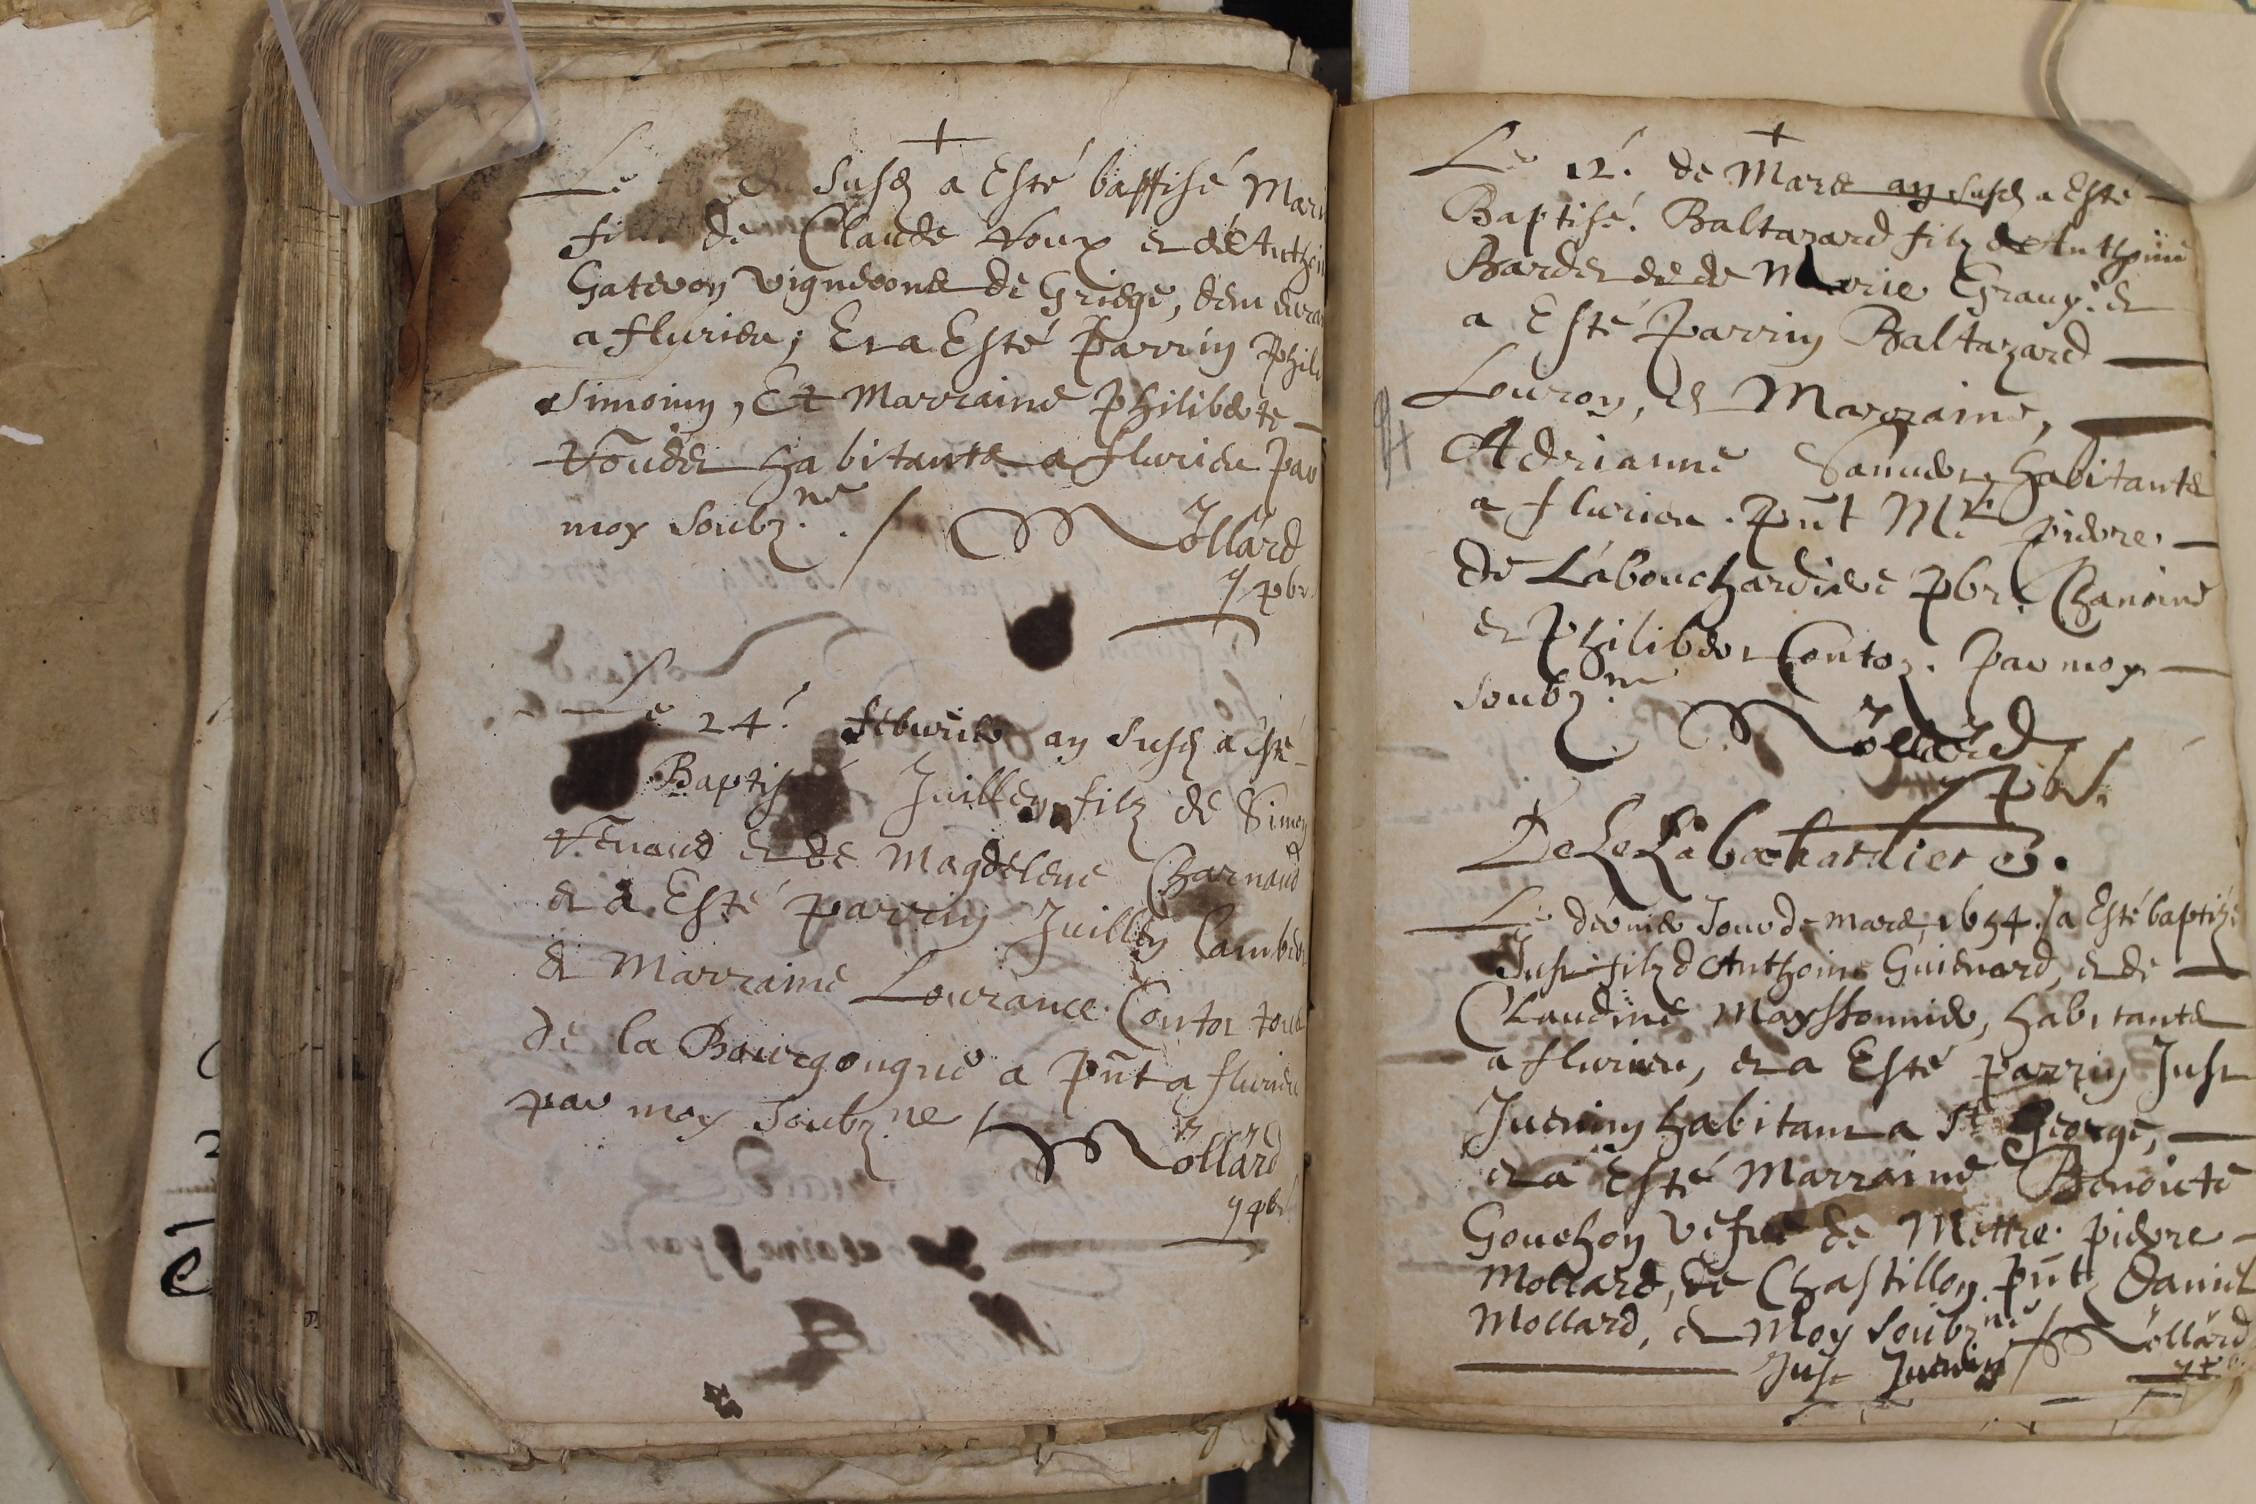 Le du susd a Esté baptisé Mari
fille de Claude Noux et de Anthoi
Gateron vignerone de Griege, demeura
a flurieu; Et a Esté Parrin Phili
Simonin, Et Marraine Philiberte
habitante a flurieu Par
moy soubz.ne ./ Mollard
pbr.
Le 24.e feburier an susd a esté
Baptisé Juillen filz de Simon
Renaud et de Magdelene Charnaud
et a Esté parrin Juillen Cambet
et Marraine Lourance Contor tous
de la Bourgongne a pñt a flurieu
par moy soubz.ne / Mollard
pbr
Le 12.e de Mars an susd a Esté
Baptisé. Baltazard filz de Anthoine
Bardet et de Marie et
a Esté Parrin Baltazard
Louron, et Marraine,
Adrianne habitante
a flurieu. pñt M.re pierre
de Labouchardiere pbr. Chanoine
et Philibert Contor. Par moy
soubz.ne
Mollard
pbr.
De La
Le dernier Jour de mars, 1654. / a Esté baptizé
Just filz d Anthoine Guienard, et de
Claudine habitants
a flurieu, et a Esté parrin Just
Juenin habitant a St George,
et a Esté Marraine Benoicte
Gouchon vefue de Mettre pierre
Mollard, de Chastillon. pñt Daniel
Mollard, et Moy soubz.ne / Mollard
Just Juenin